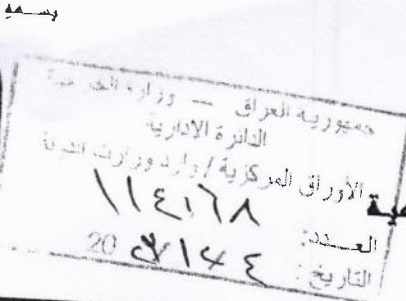 بسم
جمهورية العراق — وزارة الخارجية
الدائرة الادارية
الأوراق المركزية / وارد وزارات الدولة
العدد: ١١٤١٦٨
التاريخ: 20